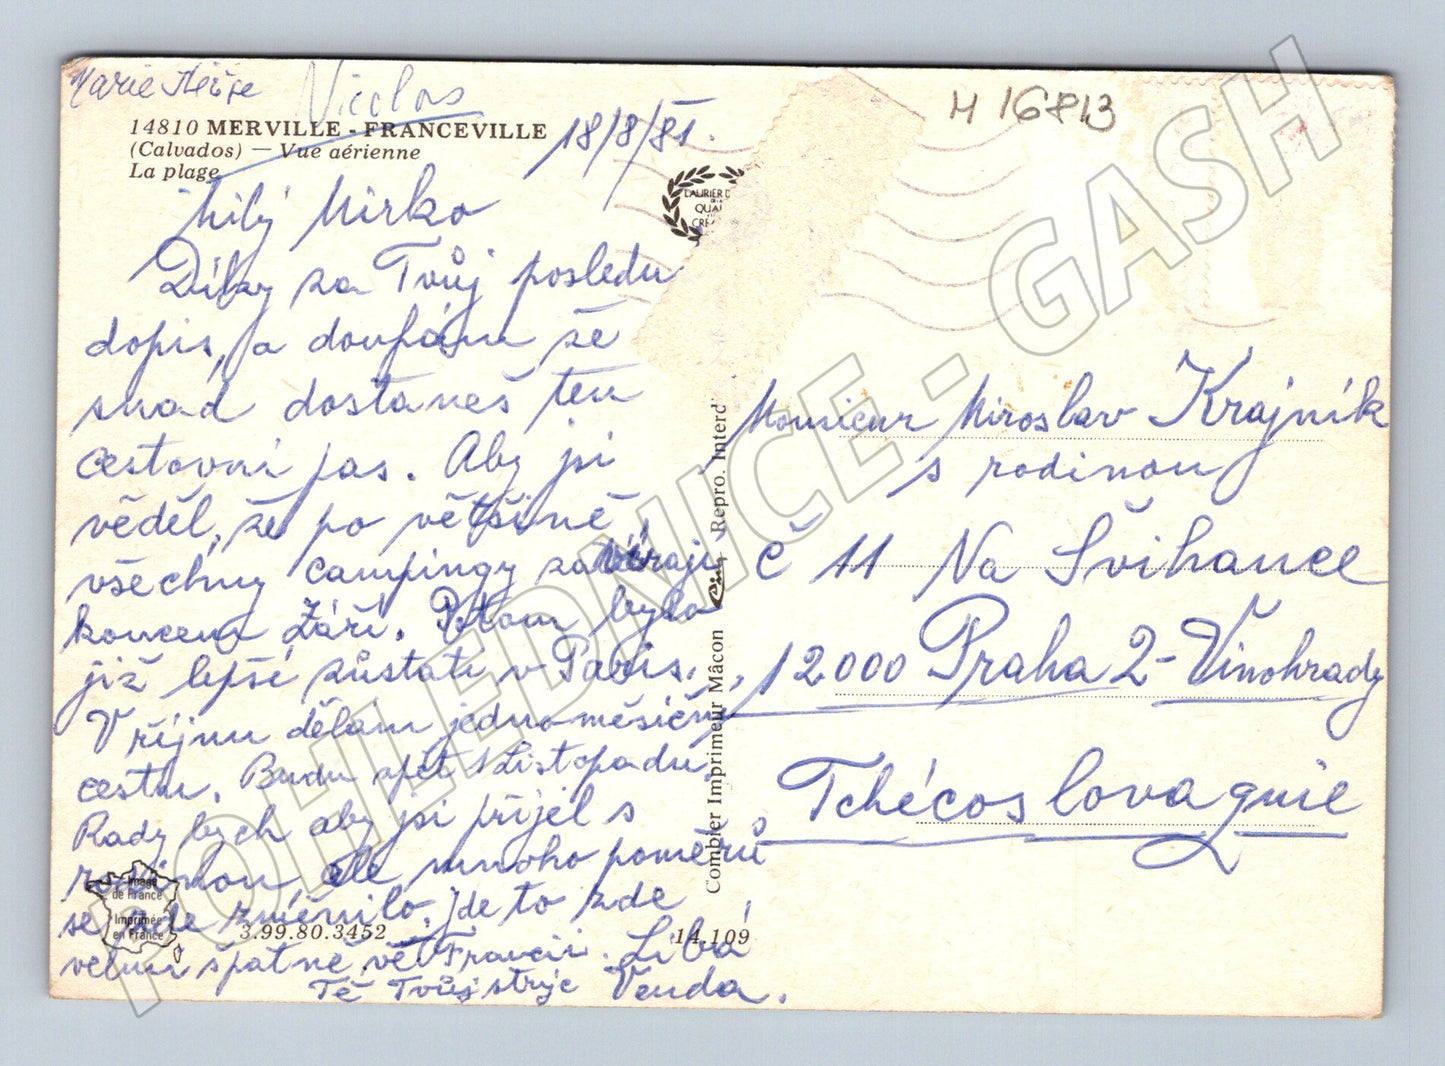 Marie
Nicolas
14810 MERVILLE - FRANCEVILLE
(Calvados) — Vue aérienne
La plage
18/8/81.
M 16813
Milý Mirko
Díky za Tvůj posledu
dopis, a doufám že
snad dostaneš ten
cestovní pas. Aby jsi
věděl, že po většině
všechny campingy zavírají
koncem Září. Potom bylo
již lepší zůstati v Paris.
V říjnu dělam jedno-měsíčný
cestu. Budu zpět 1 Listopadu.
Rady bych aby jsi přijel s
rodinou, ale mnoho poměrů
se zde změnilo. Jde to zde
velmi špatně, ve Francii. Líbá
Tě Tvůj strýc Venda.
LAURIER D
QUAL
Monsieur Miroslav Krajník
s rodinou
č 11 Na Švihance
12000 Praha 2-Vinohrady
Tchécoslovaquie
Combier Imprimeur Mâcon Cim Repro. Interd
Image
de France
Imprimée
en France
3.99.80.3452
14.109
POHLEDNICE - GASH